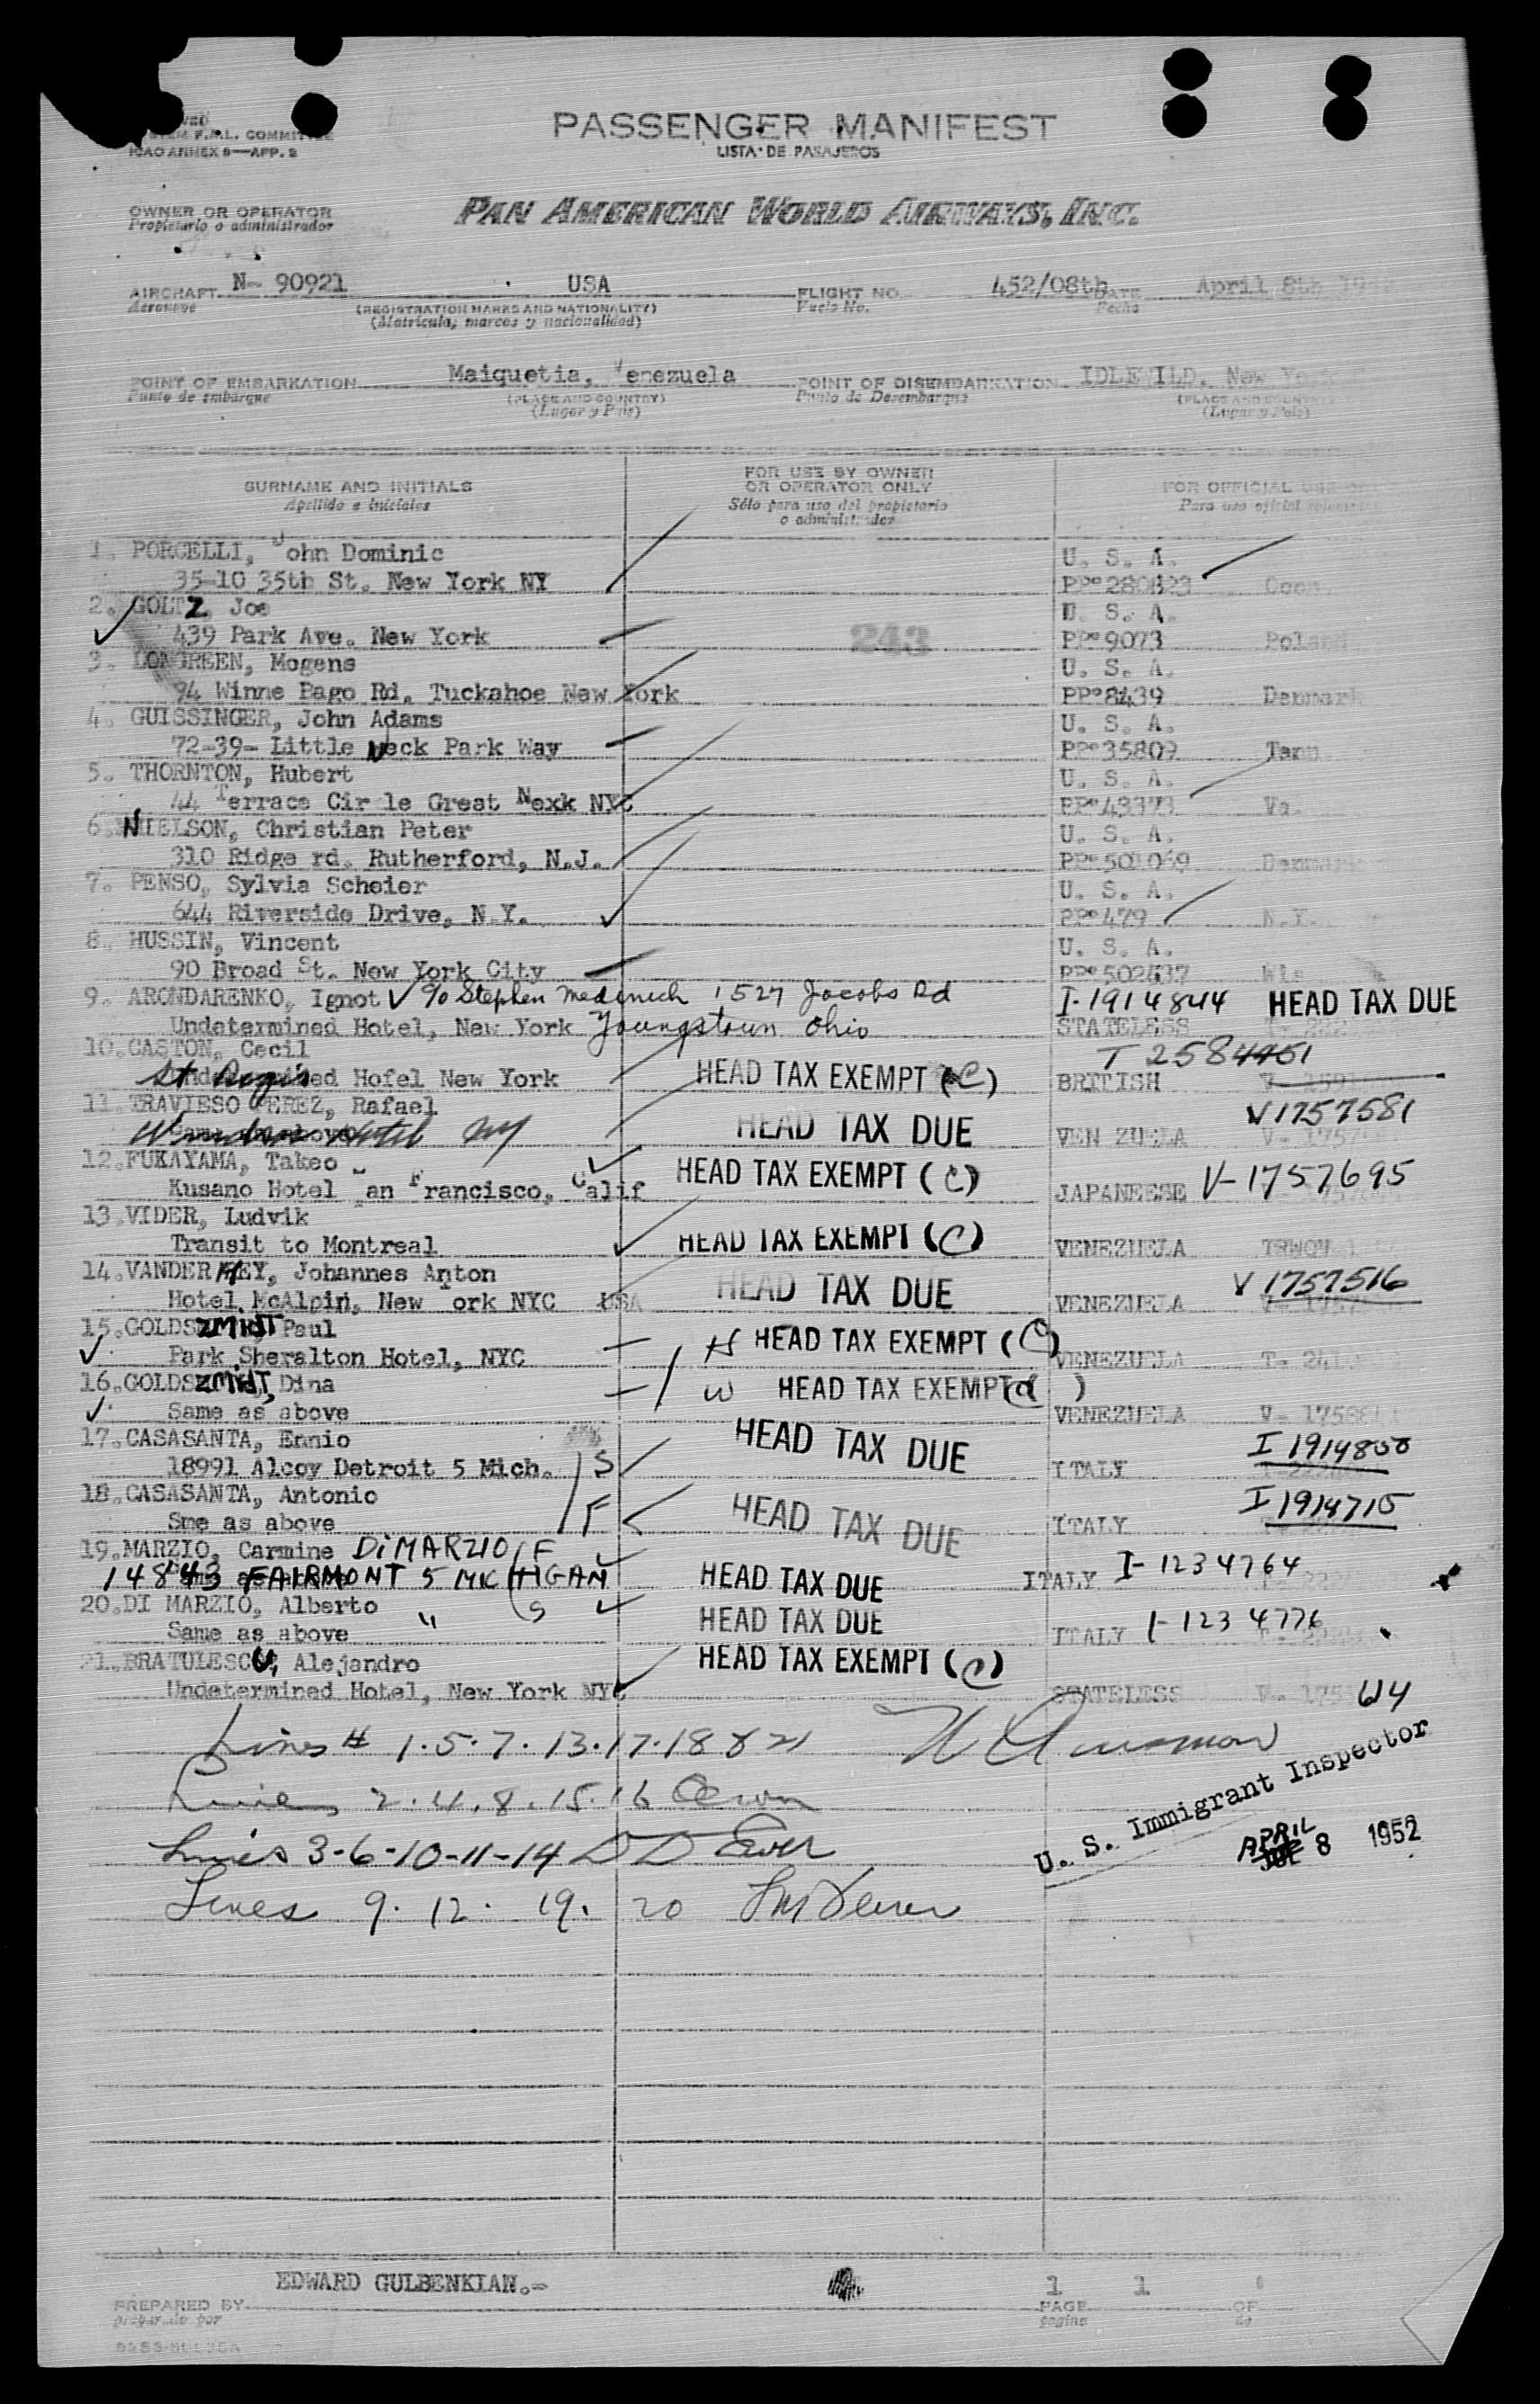 F.A.L. COMMITTEE
ICAO ANNEX 9—APP. 2
PASSENGER MANIFEST
LISTA DE PASAJEROS
OWNER OR OPERATOR
Propietario o administrador
PAN AMERICAN WORLD AIRWAYS, INC.
AIRCRAFT N- 90921 USA FLIGHT NO. 452/08th DATE April 8th
Aeronave (REGISTRATION MARKS AND NATIONALITY) Vuelo No. Fecha
(Matricula, marcas y nacionalidad)
POINT OF EMBARKATION Maiquetia, Venezuela POINT OF DISEMBARKATION IDLEWILD, New
Punto de embarque (PLACE AND COUNTRY) Punto de Desembarque (PLACE AND COUNTRY)
(Lugar y Pais) (Lugar y Pais)
SURNAME AND INITIALS FOR USE BY OWNER OR OPERATOR ONLY FOR OFFICIAL
Apellido e iniciales Sólo para uso del propietario o administrador Para uso oficial
1. PORCELLI, John Dominic U. S. A.
35-10 35th St. New York NY
2. GOLTZ, Joe U. S. A.
439 Park Ave. New York 243 PP° 9073 Poland
3. LONGREEN, Mogens U. S. A.
94 Winne Pago Rd. Tuckahoe New York PP° 8439 Denmark
4. GUISSINGER, John Adams U. S. A.
72-39- Little Neck Park Way PP° 35809 Tenn.
5. THORNTON, Hubert U. S. A.
44 Terrace Cir le Great Nexk NYC PP° 43373 Va.
6. NIELSON, Christian Peter U. S. A.
310 Ridge rd. Rutherford, N.J. PP° 501069 Denmark
7. PENSO, Sylvia Scheier U. S. A.
644 Riverside Drive, N.Y. PP° 479 N.Y.
8. HUSSIN, Vincent U. S. A.
90 Broad St. New York City PP° 502637 Wis
9. ARONDARENKO, Ignot ✓ % Stephen Medinich 1527 Jacobs Rd I-1914844 HEAD TAX DUE
Undetermined Hotel, New York Youngstown Ohio STATELESS
10. GASTON, Cecil T 2584451
St Regis Hotel New York HEAD TAX EXEMPT (C) BRITISH
11. TRAVIESO PEREZ, Rafael V1757581
Hotel NY HEAD TAX DUE VEN ZUELA
12. FUKAYAMA, Takeo HEAD TAX EXEMPT (C)
Kusano Hotel an Francisco, Calif JAPANEESE V-1757695
13. VIDER, Ludvik
Transit to Montreal HEAD TAX EXEMPT (C) VENEZUELA TRWOV
14. VANDER HEY, Johannes Anton V 1757516
Hotel McAlpin, New ork NYC USA HEAD TAX DUE VENEZUELA
15. GOLDSZMIDT Paul H HEAD TAX EXEMPT (C)
Park Sheralton Hotel, NYC VENEZUELA
16. GOLDSZMIDT, Dina W HEAD TAX EXEMPT (C)
Same as above VENEZUELA
17. CASASANTA, Ennio HEAD TAX DUE I 1914850
18991 Alcoy Detroit 5 Mich. S ITALY
18. CASASANTA, Antonio HEAD TAX DUE I 1914715
Sme as above F ITALY
19. MARZIO, Carmine DiMARZIO F
14843 FAIRMONT 5 MICHIGAN HEAD TAX DUE ITALY I-1234764
20. DI MARZIO, Alberto " S HEAD TAX DUE
Same as above ITALY I-1234776
21. BRATULESCU, Alejandro HEAD TAX EXEMPT (C)
Undetermined Hotel, New York NYC STATELESS
Lines # 1.5.7.13.17.18 & 21
Lines 2.4.8.15.16
Lines 3-6-10-11-14
Lines 9. 12. 19. 20
U. S. Immigrant Inspector
APRIL 8 1952
EDWARD GULBENKIAN.- 1 1
PREPARED BY PAGE OF
preparado por pagina de